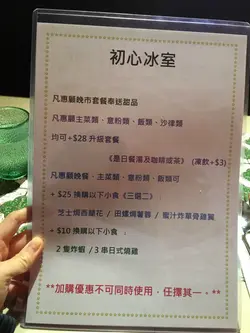 初心冰室
凡惠顧晚市套餐奉送甜品
凡惠顧主菜類、意粉類、飯類、沙律類
均可+$28 升級套餐
《是日餐湯及咖啡或茶》 (凍飲+$3)
凡惠顧晚餐、主菜類、意粉類、飯類可
+ $25 換購以下小食《三選二》
芝士焗西蘭花 / 田螺焗薯蓉 / 蜜汁炸單骨雞翼
+ $10 換購以下小食
2 隻炸蝦 / 3 串日式燒雞
**加購優惠不可同時使用,任擇其一。**